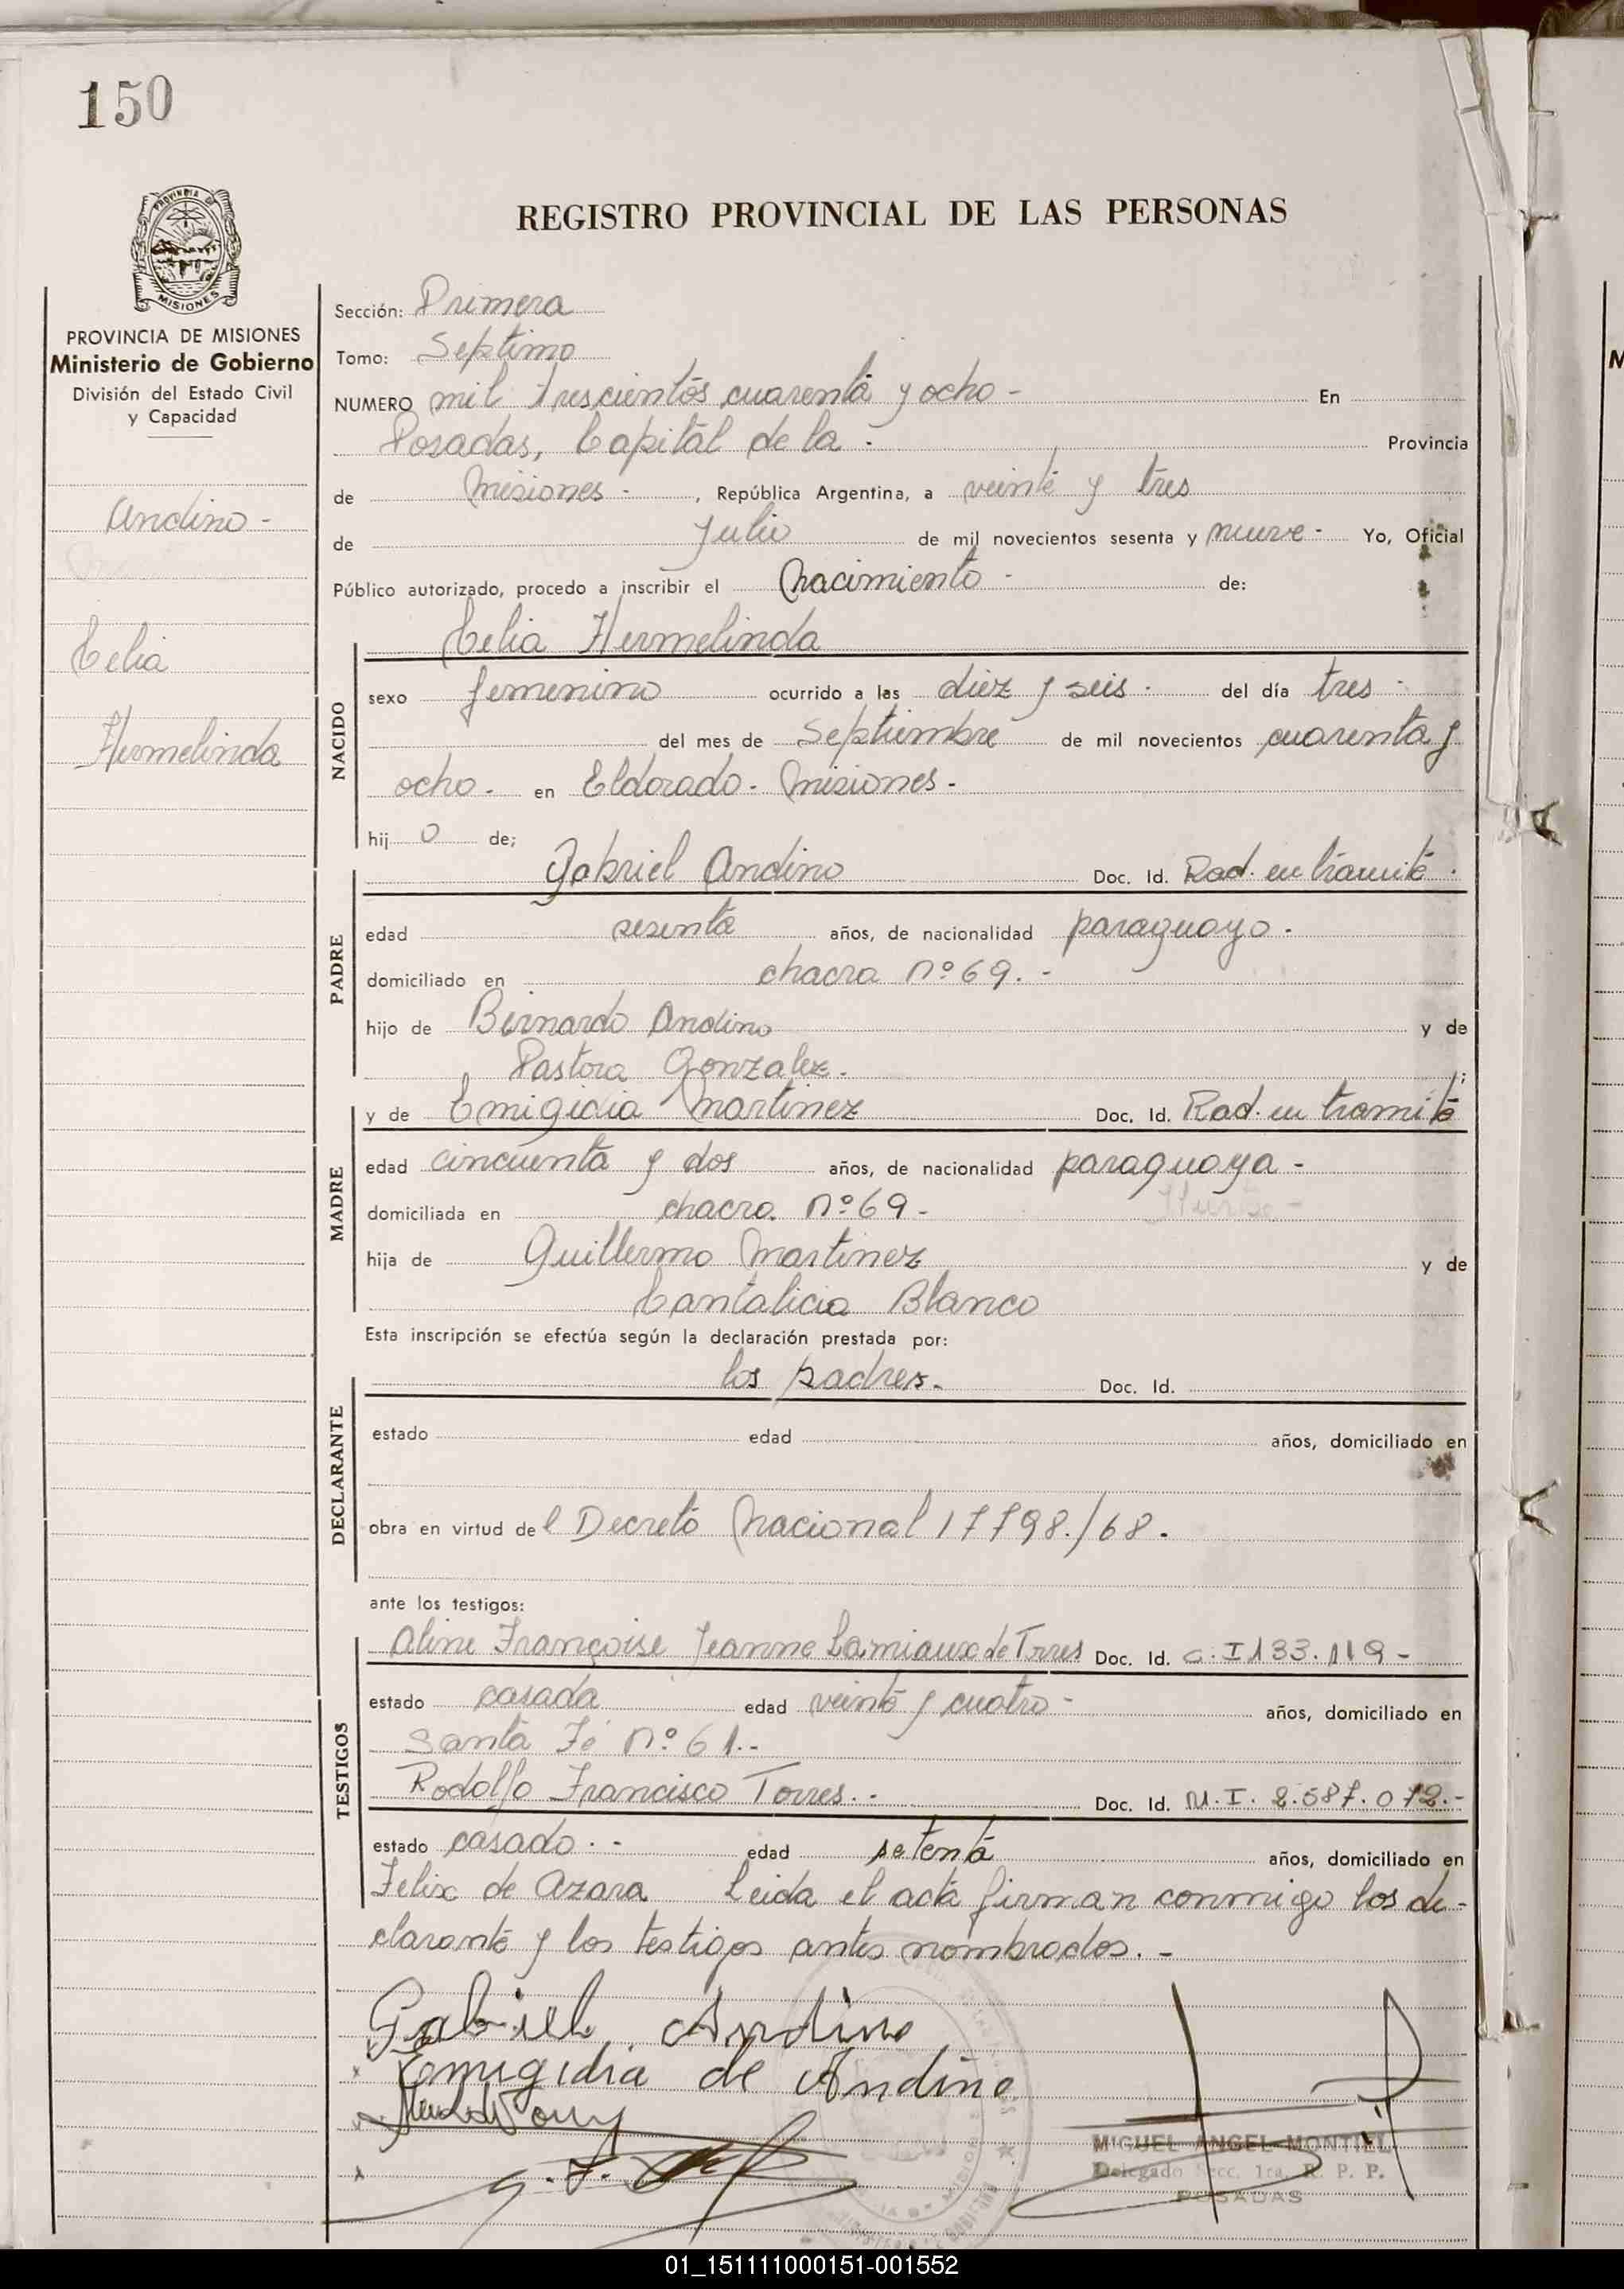 150
PROVINCIA
MISIONES
PROVINCIA DE MISIONES
Ministerio de Gobierno
División del Estado Civil
y Capacidad
Andino -
Celia
Hermelinda
REGISTRO PROVINCIAL DE LAS PERSONAS
Sección: Primera
Tomo: Septimo
NUMERO mil trescientos cuarenta y ocho - En
Posadas, Capital de la - Provincia
de Misiones - , República Argentina, a veinte y tres
de Julio de mil novecientos sesenta y nueve - Yo, Oficial
Público autorizado, procedo a inscribir el Nacimiento - de:
Celia Hermelinda
NACIDO
sexo femenino ocurrido a las diez y seis - del día tres -
del mes de Septiembre de mil novecientos cuarenta y
ocho - en Eldorado - Misiones -
hij o de;
Gabriel Andino Doc. Id. Rad. en trámite .
PADRE
edad sesenta años, de nacionalidad paraguayo -
domiciliado en chacra Nº 69. -
hijo de Bernardo Andino y de
Pastora Gonzalez. ;
y de Emigidia Martinez Doc. Id. Rad. en tramite
MADRE
edad cincuenta y dos años, de nacionalidad paraguaya -
domiciliada en chacra Nº 69 -
hija de Guillermo Martinez y de
Cantalicia Blanco
Esta inscripción se efectúa según la declaración prestada por:
los padres. Doc. Id.
DECLARANTE
estado edad años, domiciliado en
obra en virtud de l Decreto Nacional 17798./68.
ante los testigos:
Aline Françoise Jeanne Lamiaux de Torres Doc. Id. C. I 133.119 -
TESTIGOS
estado casada edad veinte y cuatro - años, domiciliado en
Santa Fé Nº 61. -
Rodolfo Francisco Torres. - Doc. Id. M. I. 2.587.072. -
estado casado. - edad setenta años, domiciliado en
Felix de Azara Leida el acta firman conmigo los de-
clarante y los testigos antes nombrados. -
Gabriel Andino
Emigidia de Andino
MIGUEL ANGEL MONTIEL
Delegado Secc. 1ra. R. P. P.
POSADAS
01_151111000151-001552